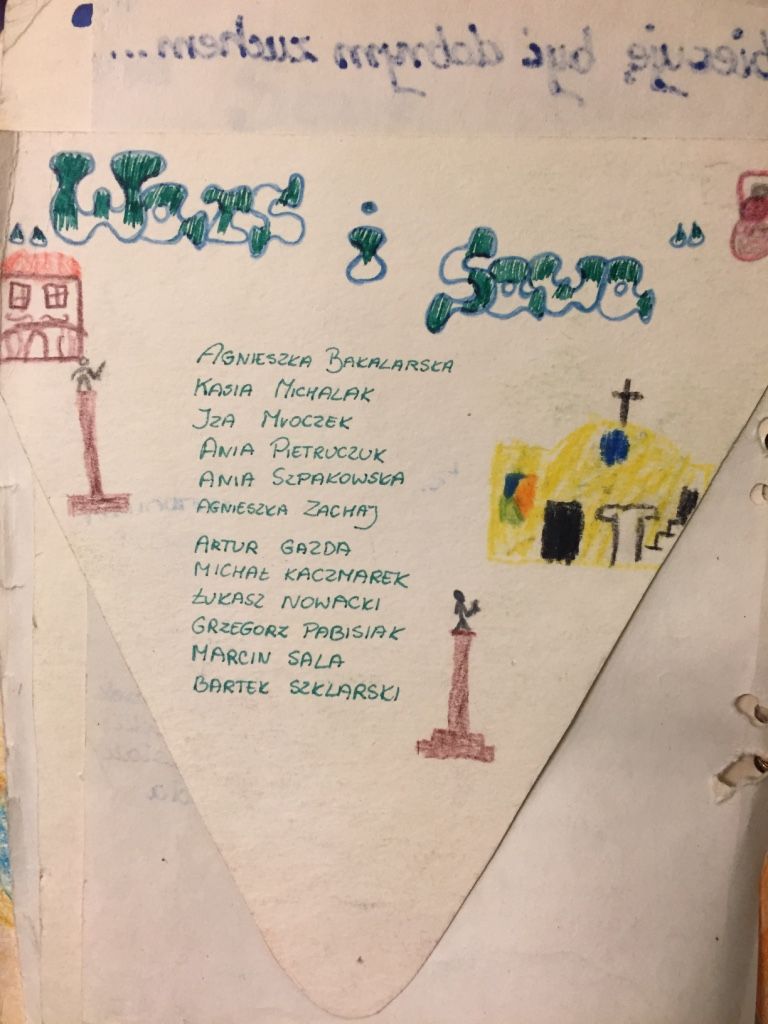 biecuję być dobrym zuchem...
„Wars i Sawa"
Agnieszka Bakalarska
Kasia Michalak
Iza Mroczek
Ania Pietruczuk
Ania Szpakowska
Agnieszka Zachaj
Artur Gazda
Michał Kaczmarek
Łukasz Nowacki
Grzegorz Pabisiak
Marcin Sala
Bartek Szklarski